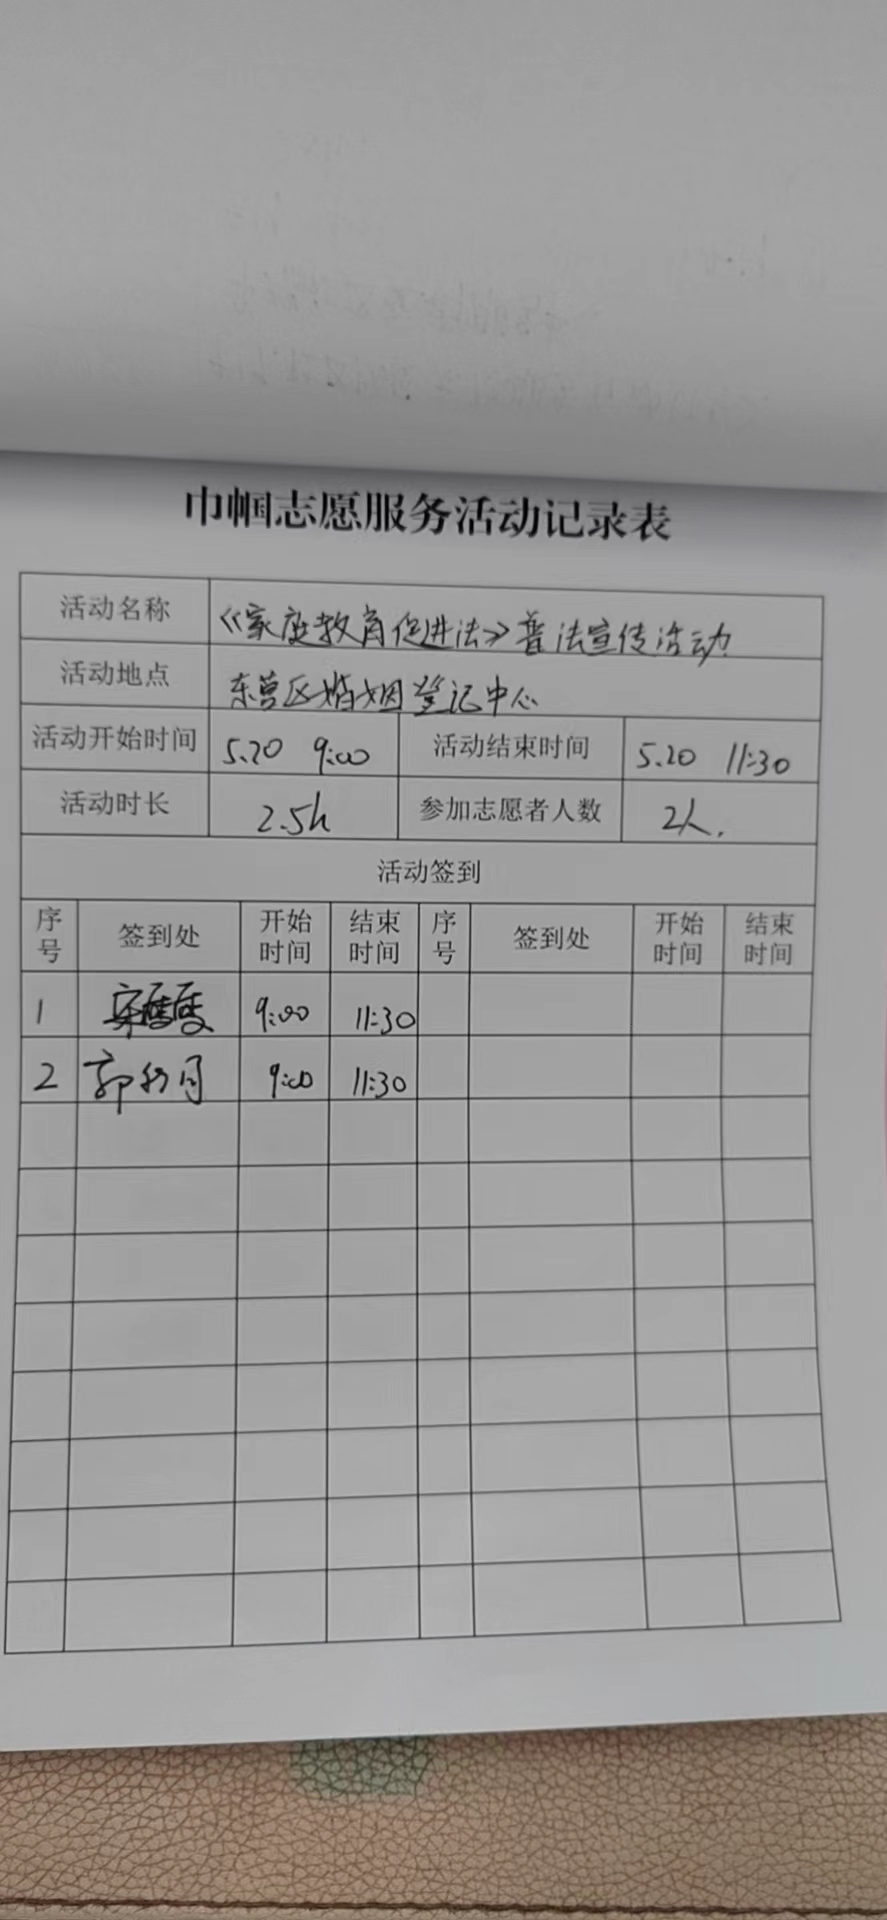 巾帼志愿服务活动记录表
活动名称 《家庭教育促进法》普法宣传活动
活动地点 东营区婚姻登记中心
活动开始时间 5.20 9:00 活动结束时间 5.20 11:30
活动时长 2.5h 参加志愿者人数 2人.
活动签到
序号 签到处 开始时间 结束时间 序号 签到处 开始时间 结束时间
1 9:00 11:30
2 郭 月 9:00 11:30